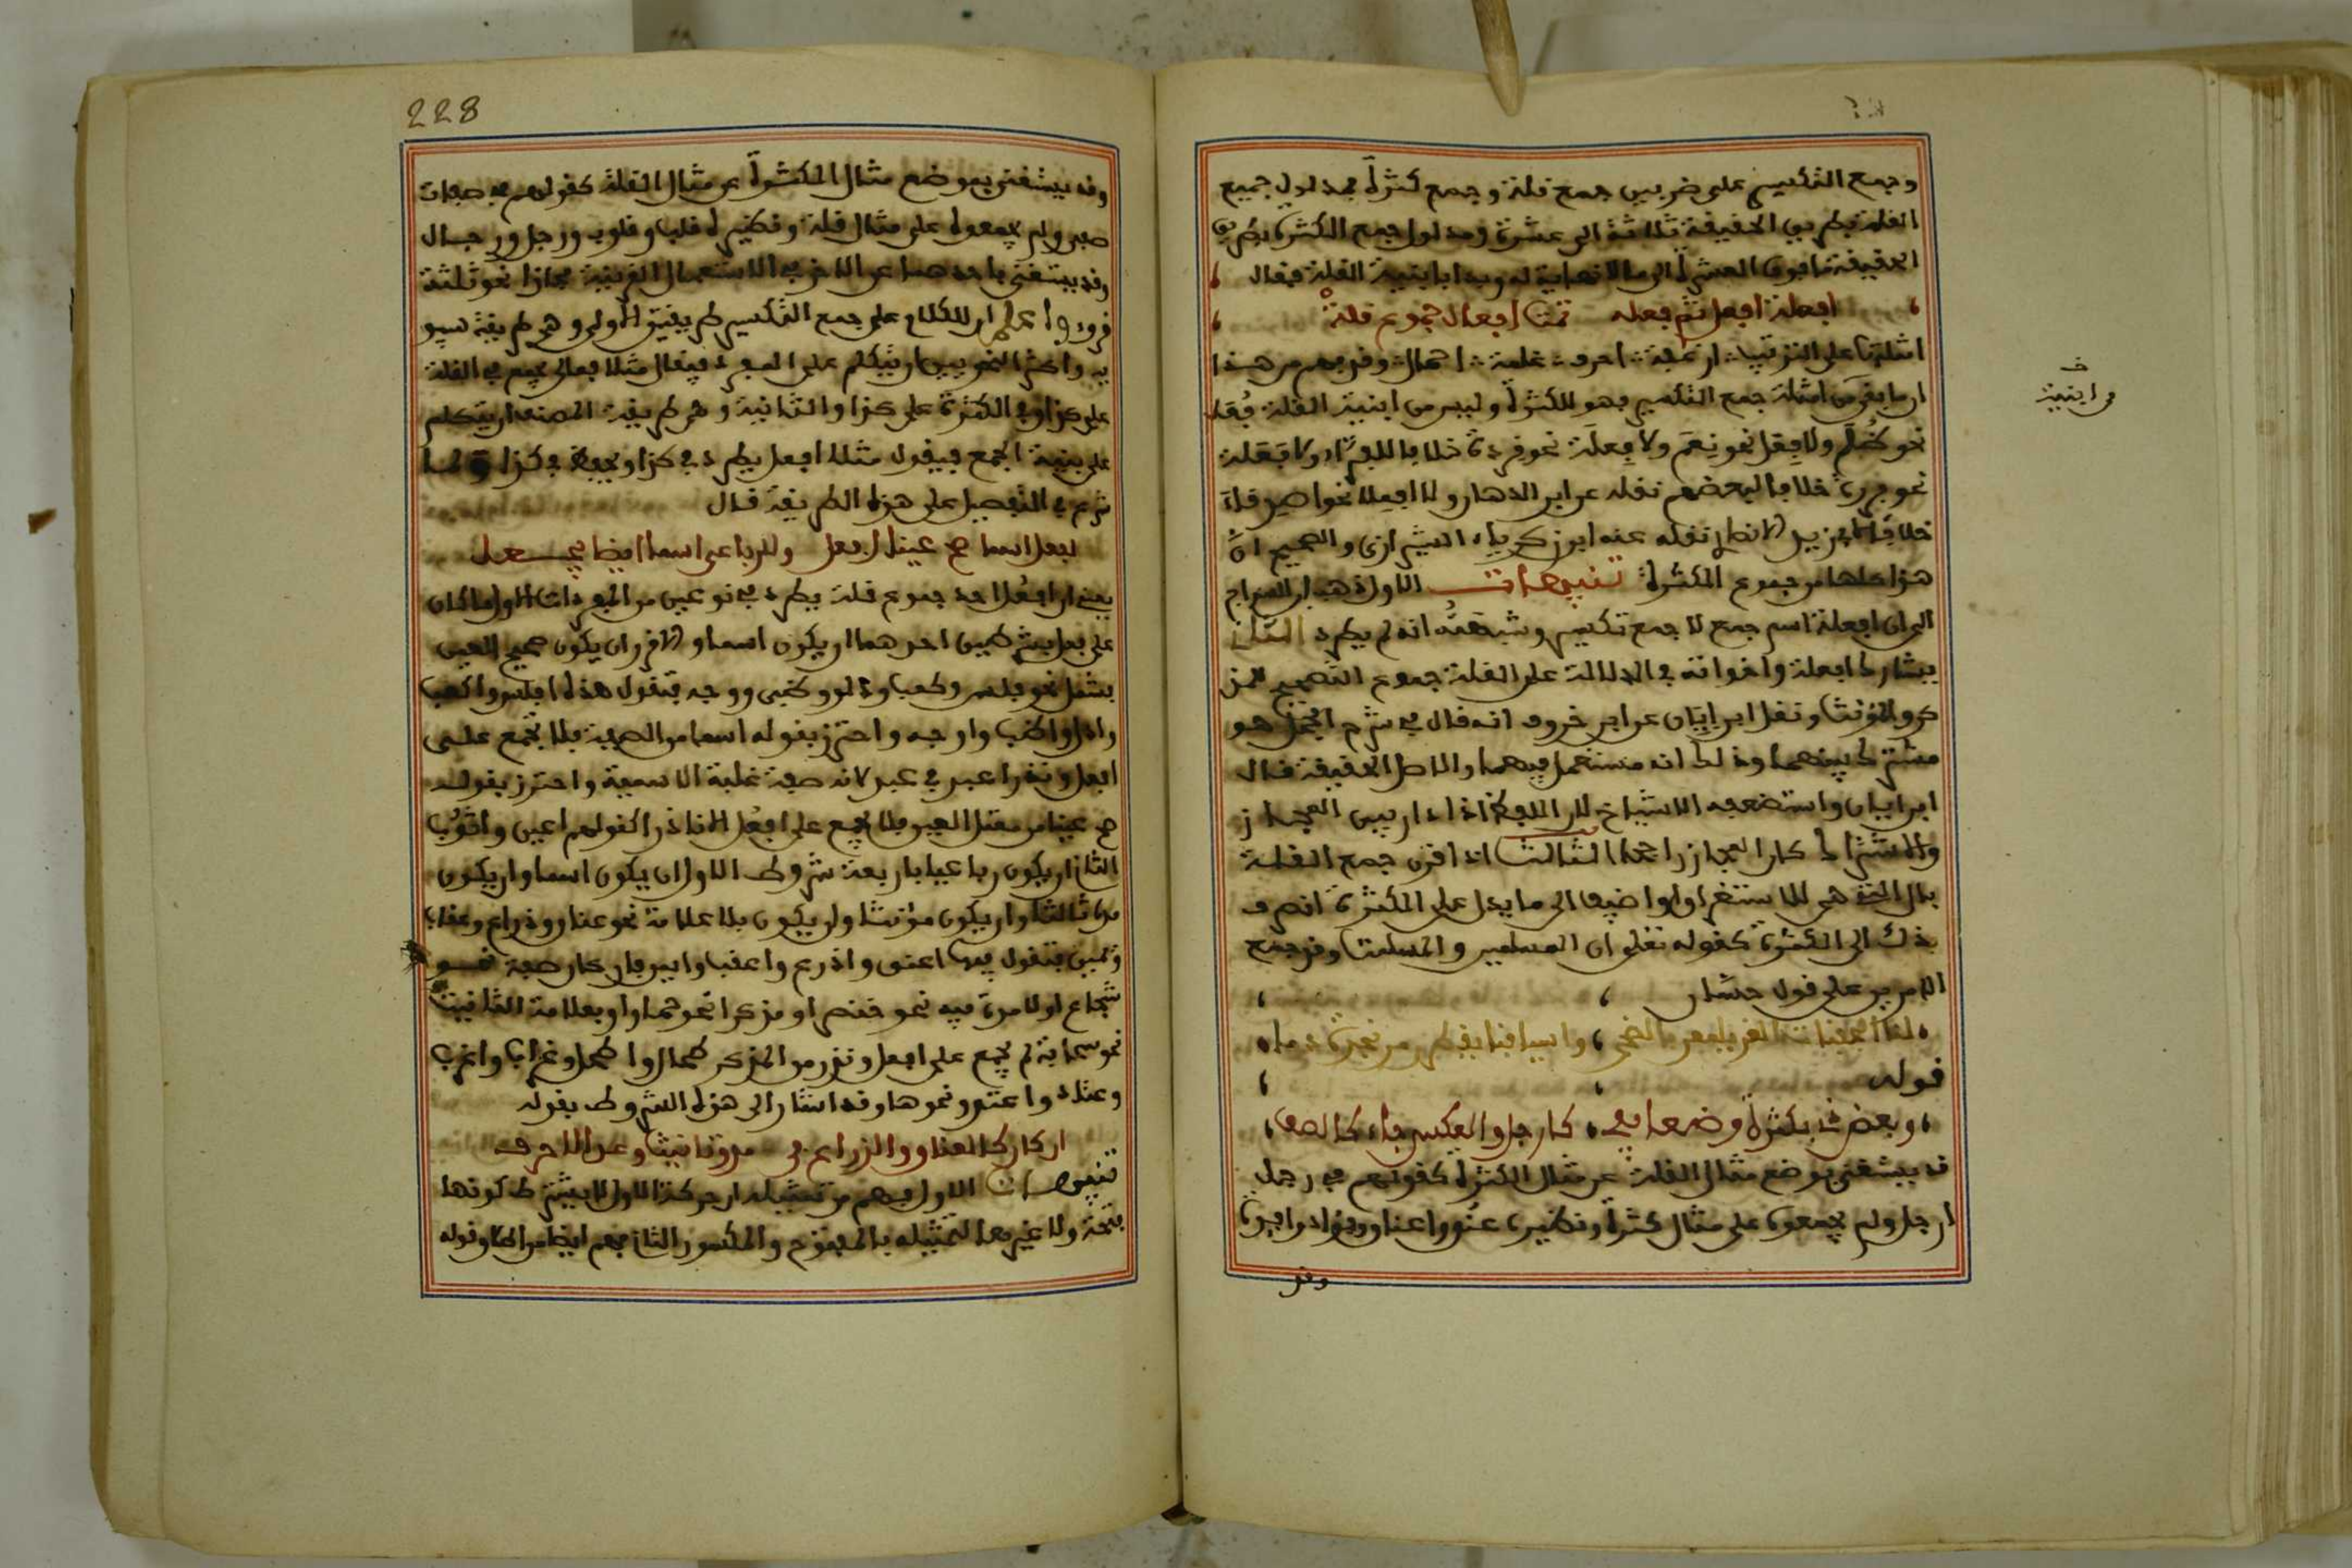 وجمع التكسير على ضربين جمع قلة وجمع كثرة فمدلول جميع
القلة بطريق الحقيقة ثلاثة الى عشرة ومدلول جمع الكثرة بطريق
الحقيقة ما فوق العشرة الى ما لا نهاية له وبدا بابنية القلة فقال
افعلة افعل ثم فعله ثمت افعال جموع قلة
امثلتها على الترتيب ارغفة احرف غلمة احمال وفهم من هذا
ان ما بقى من امثلة جمع التكسير فهو للكثرة وليس من ابنية القلة فُعَل
نحو ظُلَم ولا فِعَل نحو نِعَم ولا فِعَلَة نحو قردة خلافا للفراء ولا فَعَلة
نحو بررة خلافا لبعضهم نقله عن ابن الدهان ولا افعلاء نحو اصدقاء
خلافا لابي زيد الانصاري نقله عنه ابو زكرياء الشيرازي والصحيح ان
هذا كلها من جموع الكثرة تنبيهات الاول ذهب ابن السراج
الى ان افعلة اسم جمع لا جمع تكسير وشبهته انه لم يطرد الثاني
يشارك افعلة واخواته في الدلالة على القلة جموع التصحيح للمذ
كر والمؤنث ونقل ابن اياز عن ابن خروف انه قال في شرح الجمل هو
مشترك بينهما وذلك انه مستعمل فيهما والاصل الحقيقة قال
ابن اياز واستضعفه الاشياخ لان اللفظ اذا دار بين المجاز
والاشتراك كان المجاز راجحا الثالث اذا قرن جمع القلة
بال التي هي للاستغراق او اضيف الى ما يدل على الكثرة انصرف
بذلك الى الكثرة كقوله تعلى ان المسلمين والمسلمت وقد جمع
الامرين على قول حسان
لنا الجفنات الغر يلمعن بالضحى واسيافنا يقطرن من نجدة دما
قوله
وبعض ذي بكثرة وضعا يفي كارجل والعكس جاء كالصفي
قد يستغنى بوضع مثال القلة عن مثال الكثرة كقولهم في رجل
ارجل ولم يجمعوه على مثال كثرة ونظيره عنق واعناق وفؤاد وافئدة
وقد
ف
من ابنية
228
وقد يستغنى بموضع مثال الكثرة عن مثال القلة كقولهم في صفات
صفى ولم يجمعوه على مثال قلة ونظيره قلب وقلوب ورجل ورجال
وقد يستغنى باحدهما عن الاخر في الاستعمال لقرينة مجازا نحو ثلثة
قروء واعلم ان للكلام على جمع التكسير طريقتين الاولى وهي طريقة سيبو
يه واكثر النحويين ان يتكلم على المفرد فيقال مثلا فعال يجمع في القلة
على كذا وفي الكثرة على كذا والثانية وهي طريقة المصنف ان يتكلم
على بنية الجمع فيقول مثلا افعل يطرد في كذا ويحفظ في كذا ولما
شرع في التفصيل على هذه الطريقة قال
لفعل اسما صح عينا افعل وللرباعي اسما ايضا يجعل
يعني ان افعل احد جموع قلة يطرد في نوعين من المفردات الاول ما كان
على فعل بشرطين احدهما ان يكون اسما والاخر ان يكون صحيح العين
يشمل نحو فلس وكعب ودلو وظبي ووجه فتقول هذه افلس واكعب
وادل واظب واوجه واحترز بقوله اسما من الصفة فلا يجمع على
افعل وندر اعبد في عبد لانه صفة غلبة الاسمية واحترز بقوله
صح عينا من معتل العين فلا يجمع على افعل الا نادرا كقولهم اعين واثوب
الثاني ان يكون رباعيا باربعة شروط الاول ان يكون اسما وان يكون
مدة ثالثا وان يكون مؤنثا وان يكون بلا علامة نحو عناق وذراع وعقاب
ويمين فتقول فيها اعنق واذرع واعقب وايمن فان كان صفة نحو
شجاع او لا مدة فيه نحو خنصر او مذكرا نحو حمار او بعلامة التانيث
نحو سحابة لم يجمع على افعل وندر من المذكر طحال واطحل وغراب واغرب
وعتاد واعتد ونحوها وقد اشار الى هذه الشروط بقوله
ان كان كالعناق والذراع في مد وتانيث وعد الاحرف
تنبيهات الاول فهم من تمثيله ان حركة الاول لا يشترط كونها
فتحة ولا غيرها لتمثيله بالمفتوح والمكسور الثاني فهم ايضا من اطلاق قوله